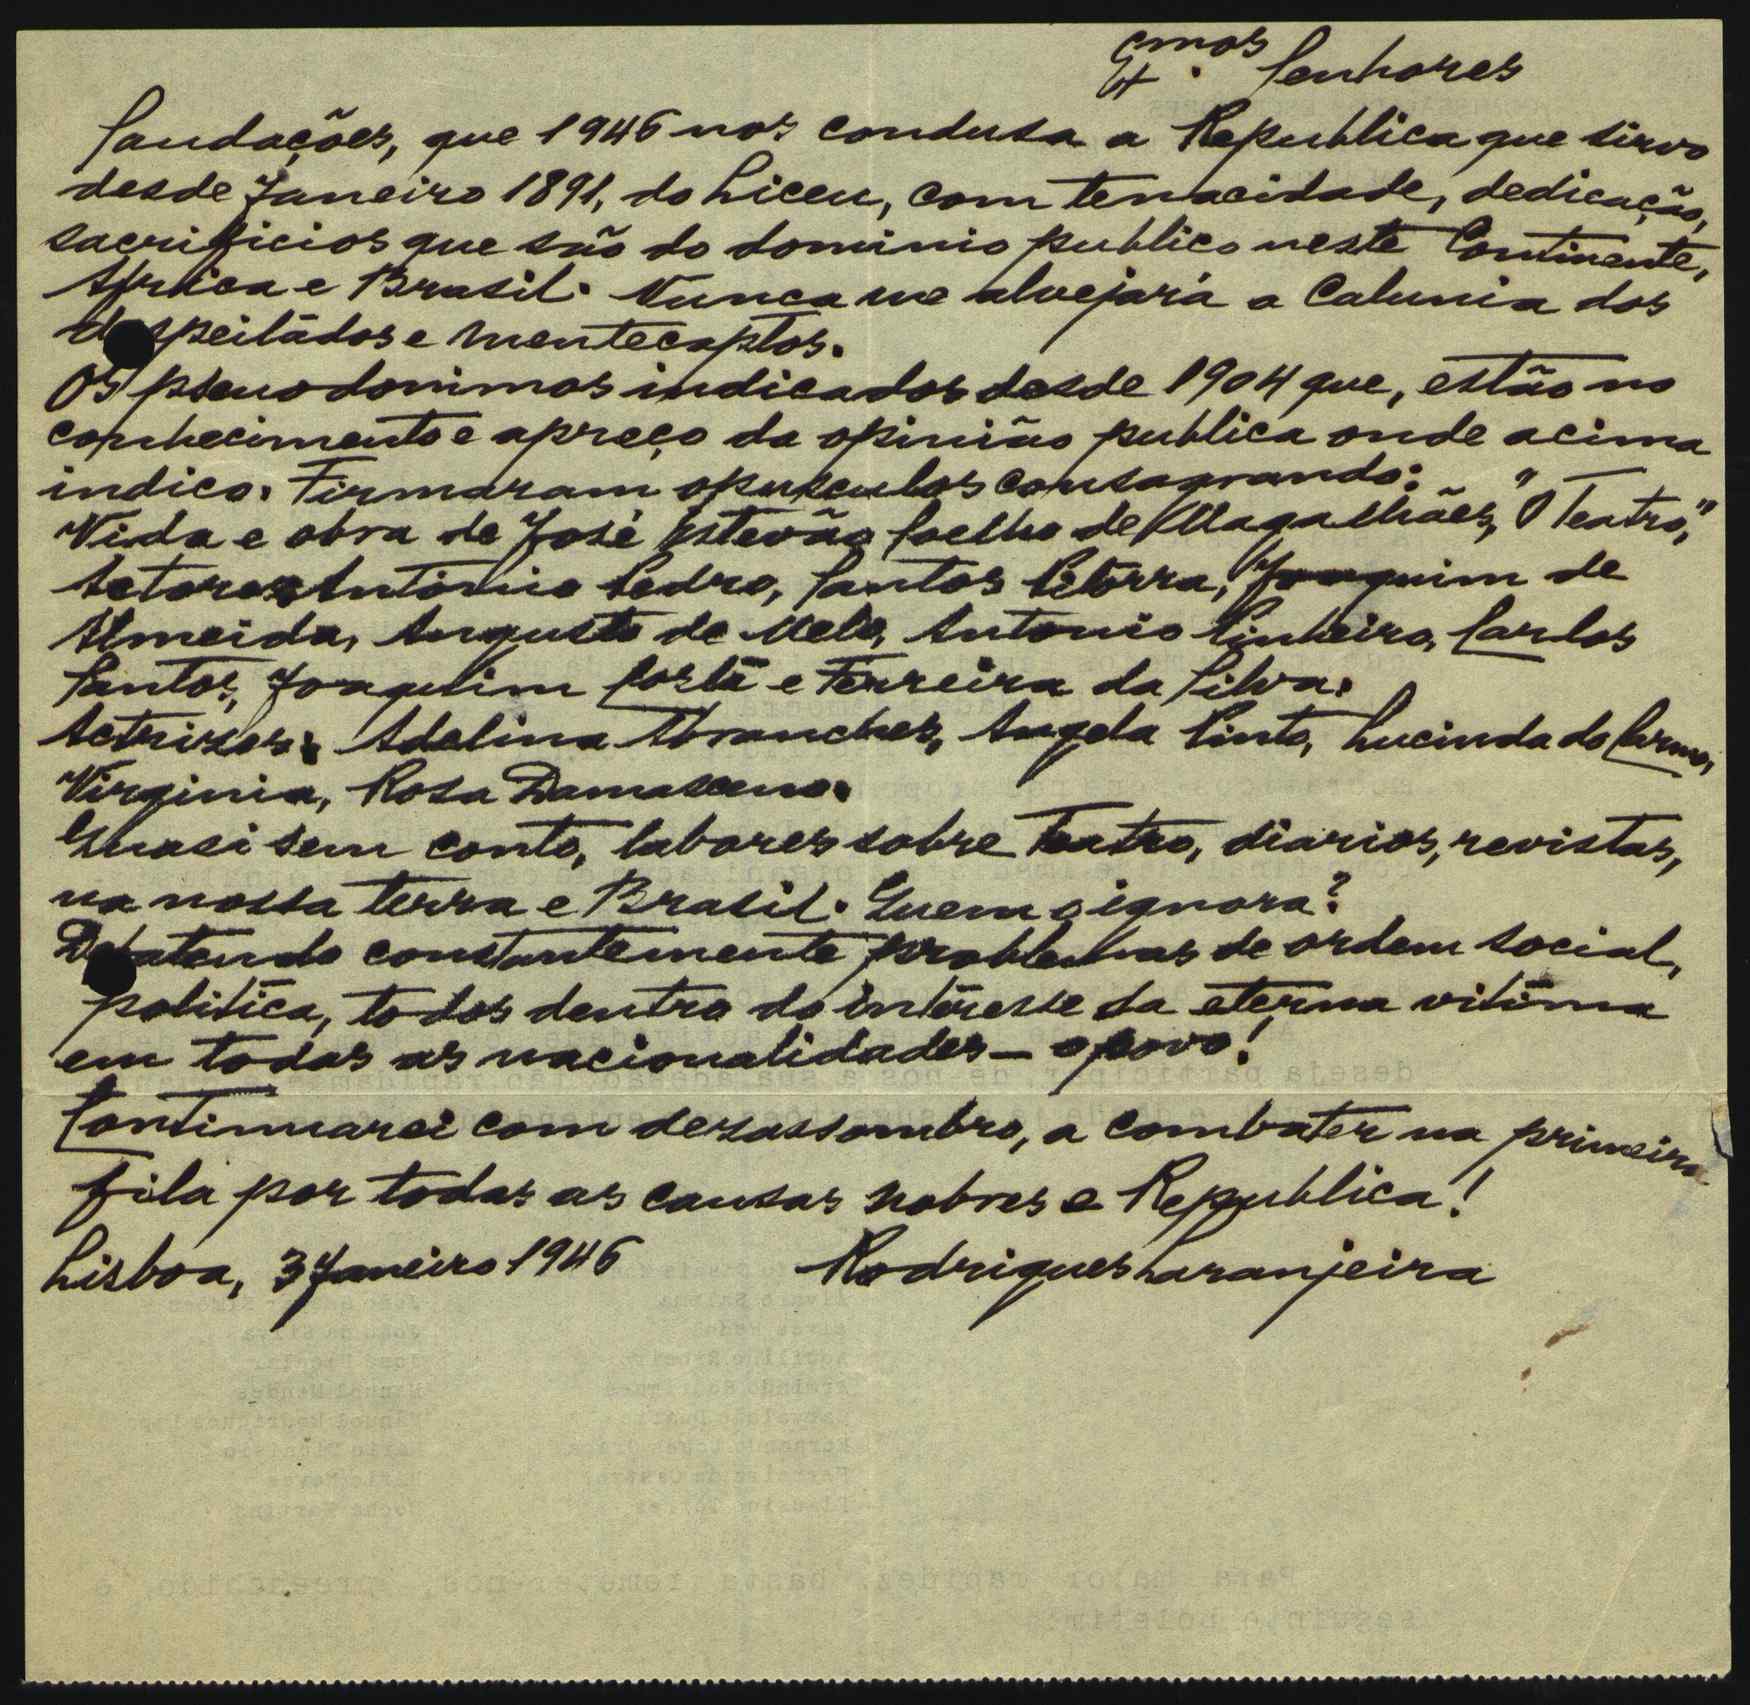 Exmos. Senhores
Saudações, que 1946 nos condusa a Republica que sirvo
desde Janeiro 1891, do Liceu, com tenacidade, dedicação,
sacrificios que são do dominio publico neste Continente,
Africa e Brasil. Nunca me alvejará a Calunia dos
despeitádos e mentecaptos.
Os pseuodonimos indicados desde 1904 que, estão no
conhecimento e apreço da opinião publica onde acima
indico. Firmaram opusculos consagrando:
Vida e obra de José Estevão Coelho de Magalhães, "O Teatro",
Actores António Pedro, Santos Pitorra, Joaquim de
Almeida, Augusto de Melo, Antonio Pinheiro, Carlos
Santos, Joaquim Costa e Ferreira da Silva.
Actrizes: Adelina Abranches, Angela Pinto, Lucinda do Carmo,
Virginia, Rosa Damasceno.
Quasi sem conto, labores sobre Teatro, diarios, revistas,
na nossa terra e Brasil. Quem o ignora?
Debatendo constantemente problemas de ordem social,
politica, todos dentro do interesse da eterna vitima
em todas as nacionalidades - o povo!
Continuarei com desassombro, a combater na primeira
fila por todas as causas nobres e Republica!
Lisboa, 3 Janeiro 1946 Rodrigues Laranjeira